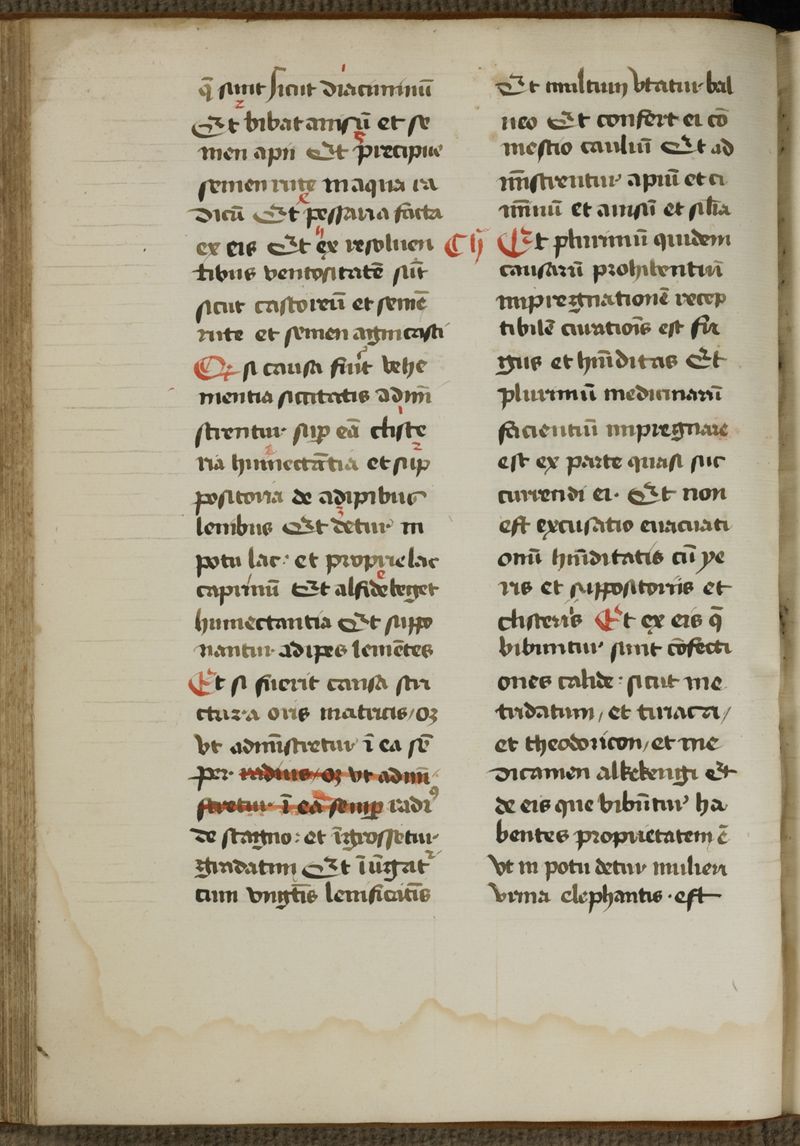 q̄ sunt sicut diacuminū
Et bibat amsū et se
men apii Et precipue
semen rute in aqua ra
dicū Et pessaria facta
ex eis Et ex resoluen
tibus ventositatē sūt
sicut castoreū et semē
rute et semen agni casti
Et si causa fiūt vehe
mentia siccitatis admī
strentur sup eā cliste
ria humectātia et sup
positoria de adipibus
lenibus Et detur in
potu lac· et proprie lac
caprinū Et alfidebeget
humectantia Et suppo
nantur adipes lenietes
Et si fuerit causa stri
ctura oris matricis/oꝫ
vt admīstretur ī ea sē
per radius/oꝫ vt admī
stretur ī ea semꝑ radiꝰ
de stagno: et īgrossetur
gradatim Et īūgat᷑
cum vngtīs lenificatīs
Et multum vtatur bal
neo Et confert ei cō
mestio cauliū Et ad
mīstrentur apiū et ci
mīnū et anisū et silia
Et plurimū quidem
causarū prohibentiū
impregnationē recep
tibilē curatiōis est fri
gus et hmīditas Et
plurimū medicinarū
facientiū impregnare
est ex parte quasi suc
currendi ei· Et non
est excusatio euacuati
onū hmīditatis cū ye
ris et suppositoriis et
clisteriis Et ex eis q̄
bibuntur sunt cōfecti
ones calide· sicut me
tridatum/ et tiriaca/
et theodoricon/ et me
dicamen alkekengi Et
de eis que bibūtur ha
bentes proprietatem ē
vt in potu detur mulieri
vrina elephantis · est